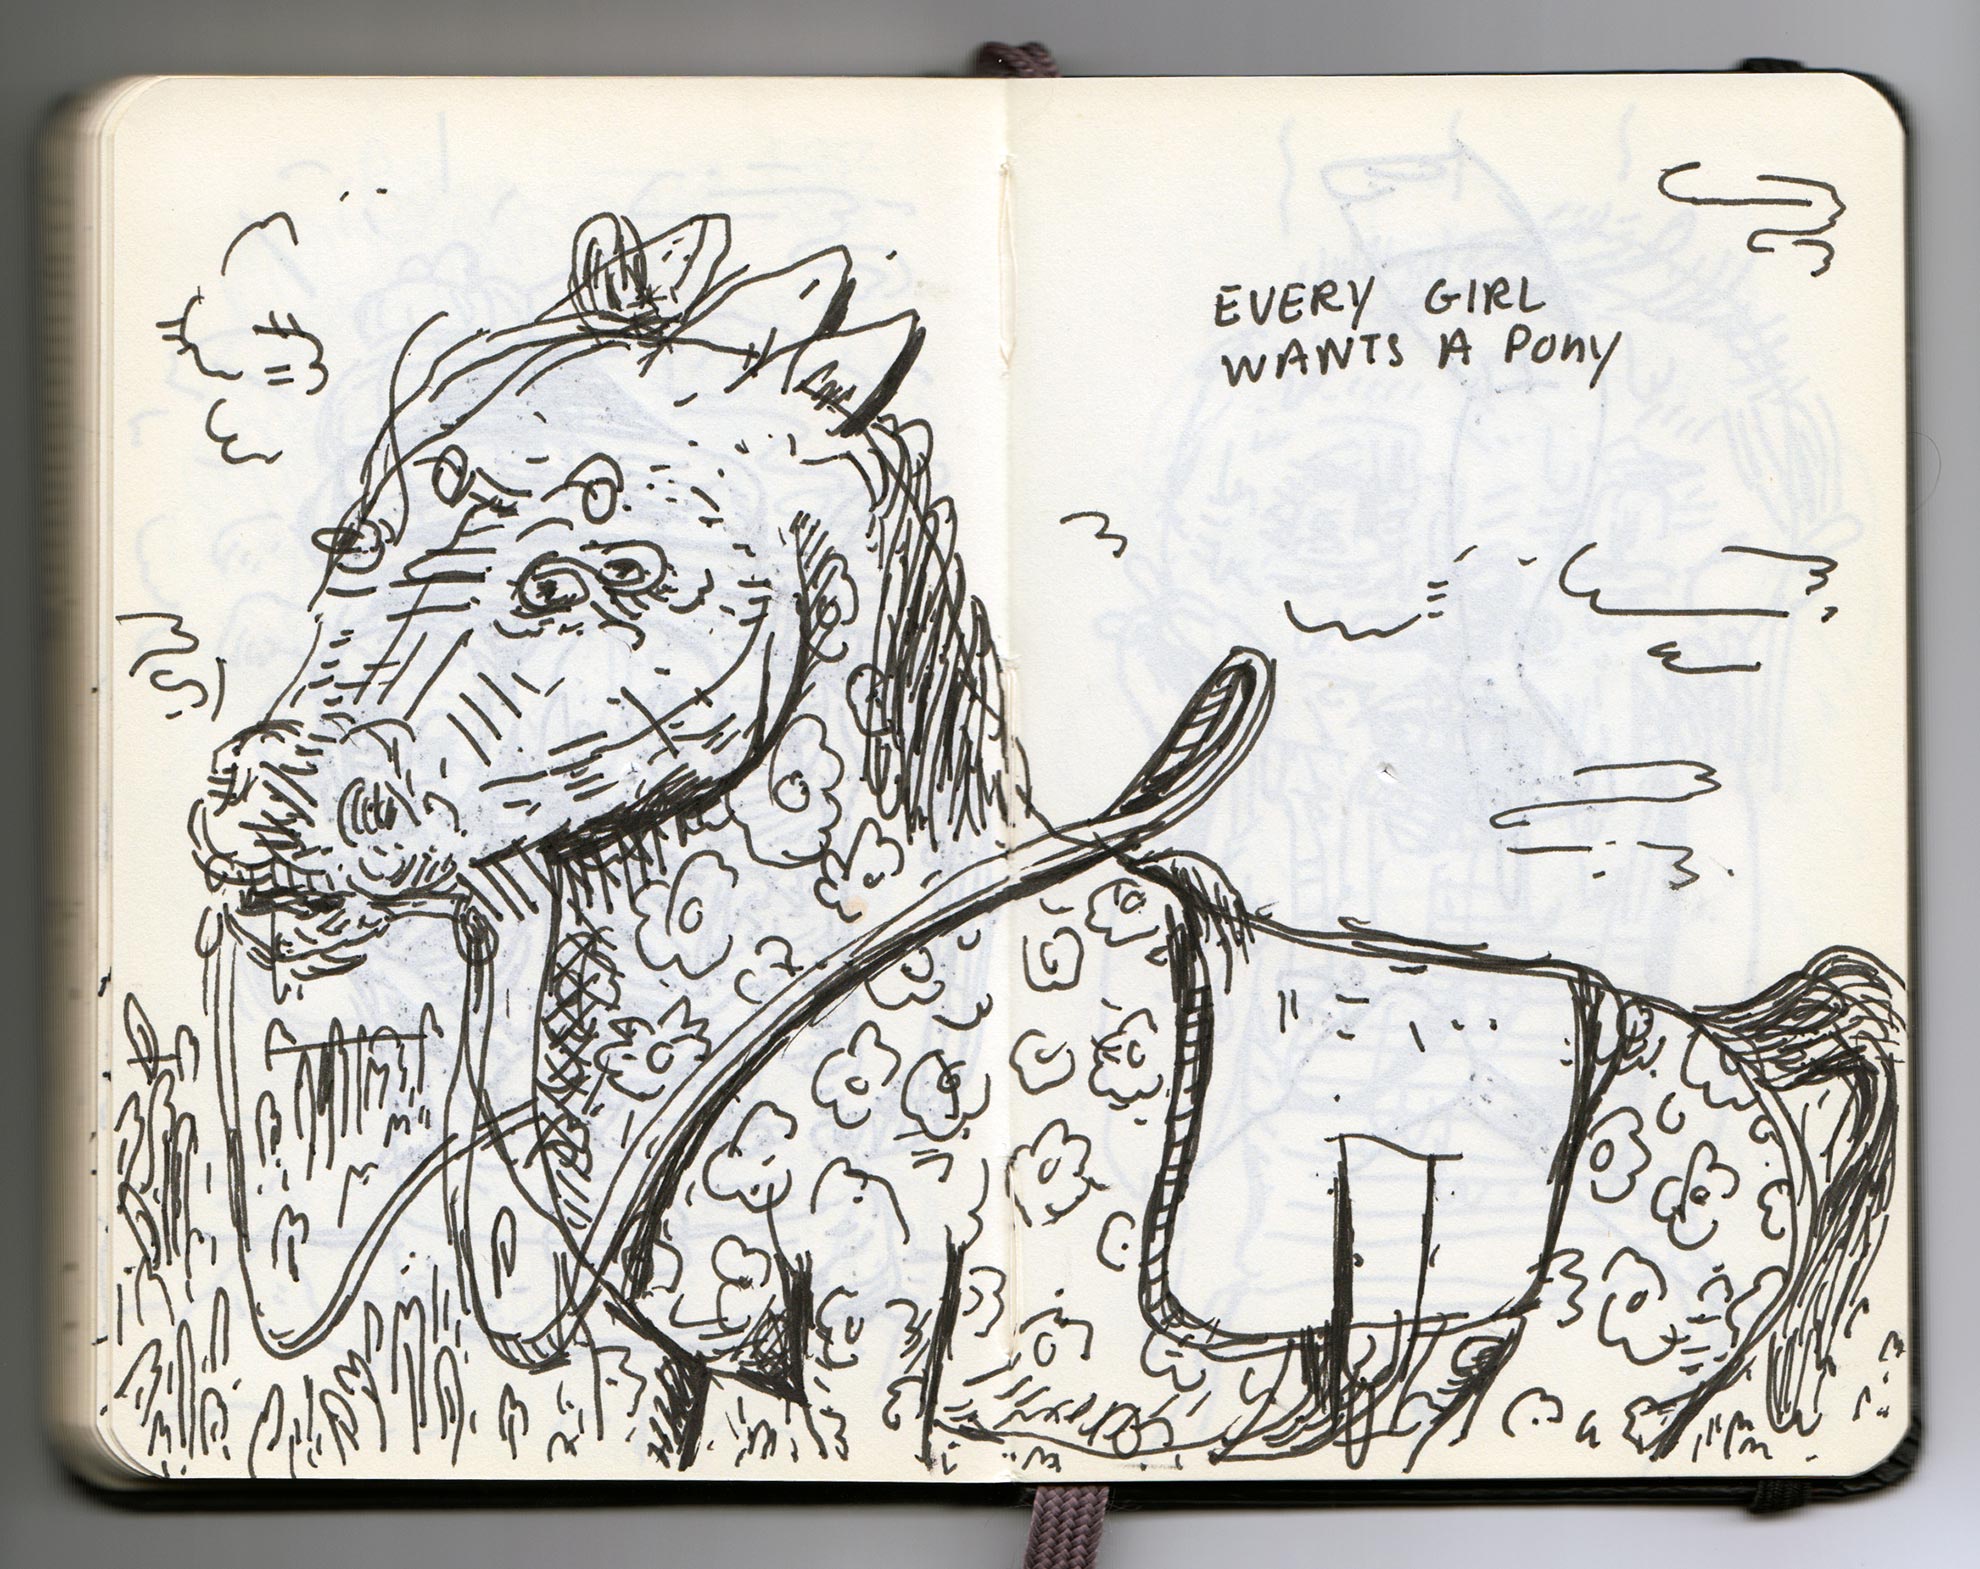 EVERY GIRL
WANTS A PONY